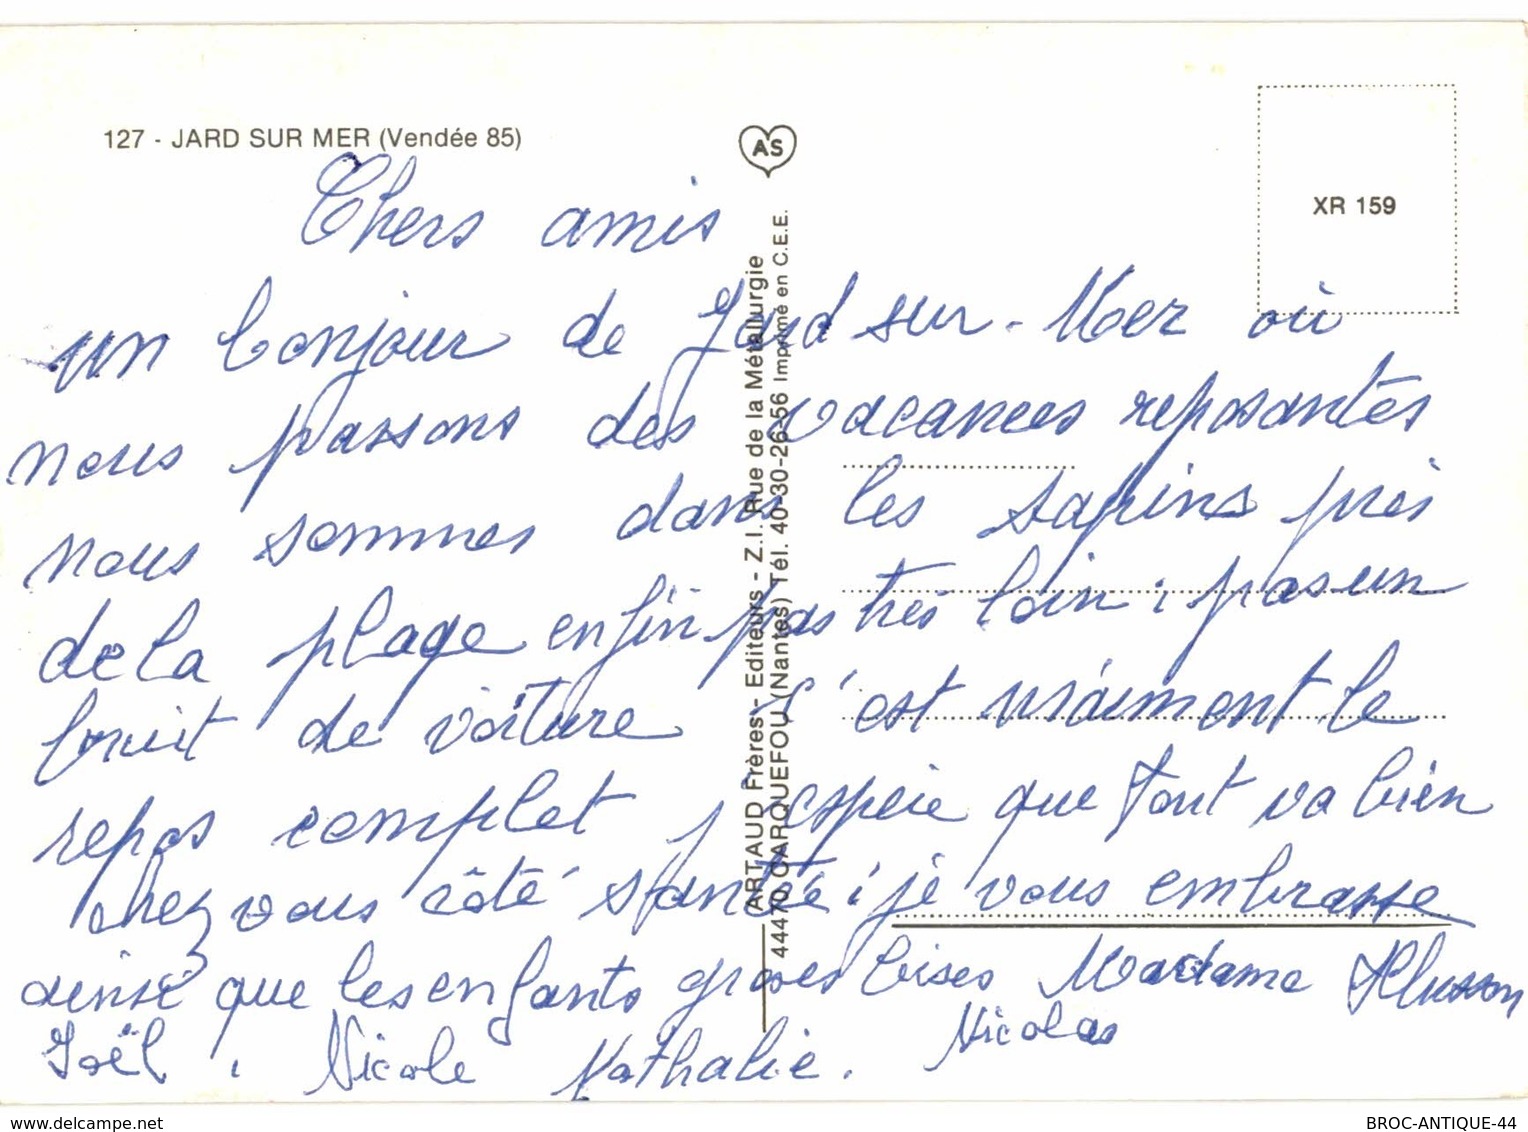 127 - JARD SUR MER (Vendée 85)
AS
XR 159
ARTAUD Frères - Editeurs - Z.I. Rue de la Métallurgie
44470 CARQUEFOU (Nantes) Tél. 40-30-26-56 Imprimé en C.E.E.
Chers amis
un bonjour de Jard sur-Mer où
nous passons des vacances reposantes
nous sommes dans les sapins près
de la plage enfin pas très loin ; pas un
bruit de voiture c'est vraiment le
repos complet j'espère que tout va bien
chez vous côté santé ; je vous embrasse
ainsi que les enfants grosses bises Madame
Joël, Nicole Nathalie. Nicolas
www.delcampe.net
BROC-ANTIQUE-44